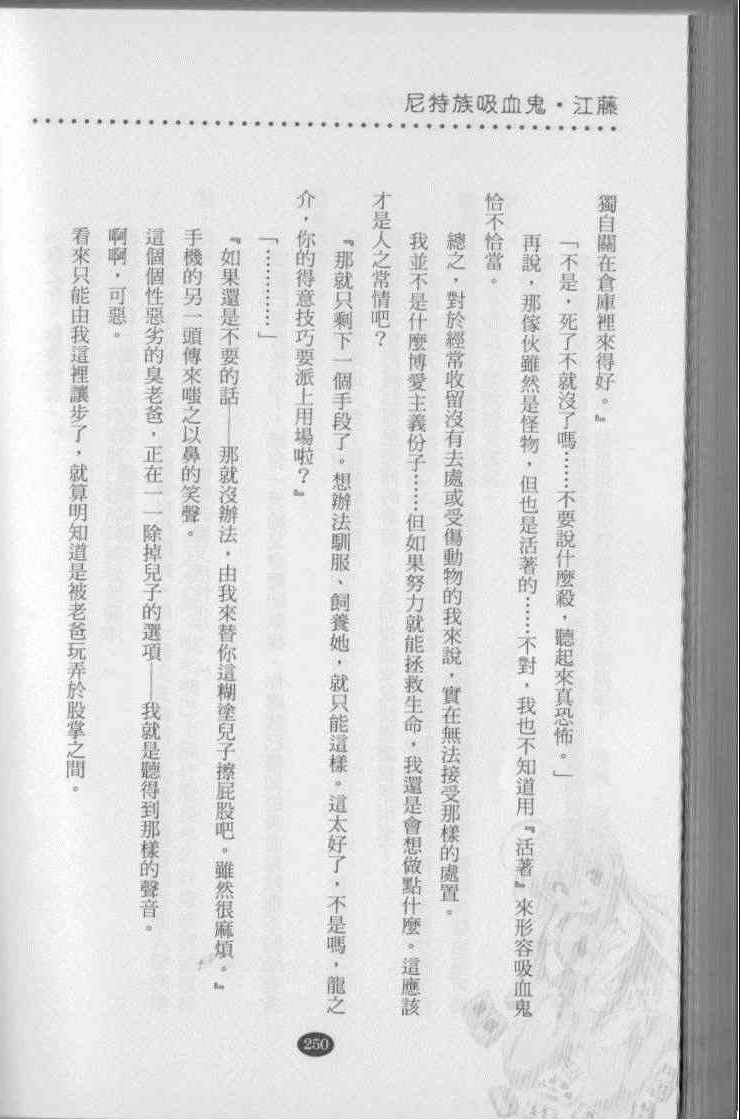 尼特族吸血鬼・江藤
獨自關在倉庫裡來得好。』
「不是，死了不就沒了嗎……不要說什麼殺，聽起來真恐怖。」
再說，那傢伙雖然是怪物，但也是活著的……不對，我也不知道用『活著』來形容吸血鬼
恰不恰當。
總之，對於經常收留沒有去處或受傷動物的我來說，實在無法接受那樣的處置。
我並不是什麼博愛主義份子……但如果努力就能拯救生命，我還是會想做點什麼。這應該
才是人之常情吧？
『那就只剩下一個手段了。想辦法馴服、飼養她，就只能這樣。這太好了，不是嗎，龍之
介，你的得意技巧要派上用場啦？』
「…………」
『如果還是不要的話——那就沒辦法，由我來替你這糊塗兒子擦屁股吧。雖然很麻煩。』
手機的另一頭傳來嗤之以鼻的笑聲。
這個個性惡劣的臭老爸，正在一一除掉兒子的選項——我就是聽得到那樣的聲音。
啊啊，可惡。
看來只能由我這裡讓步了，就算明知道是被老爸玩弄於股掌之間。
250